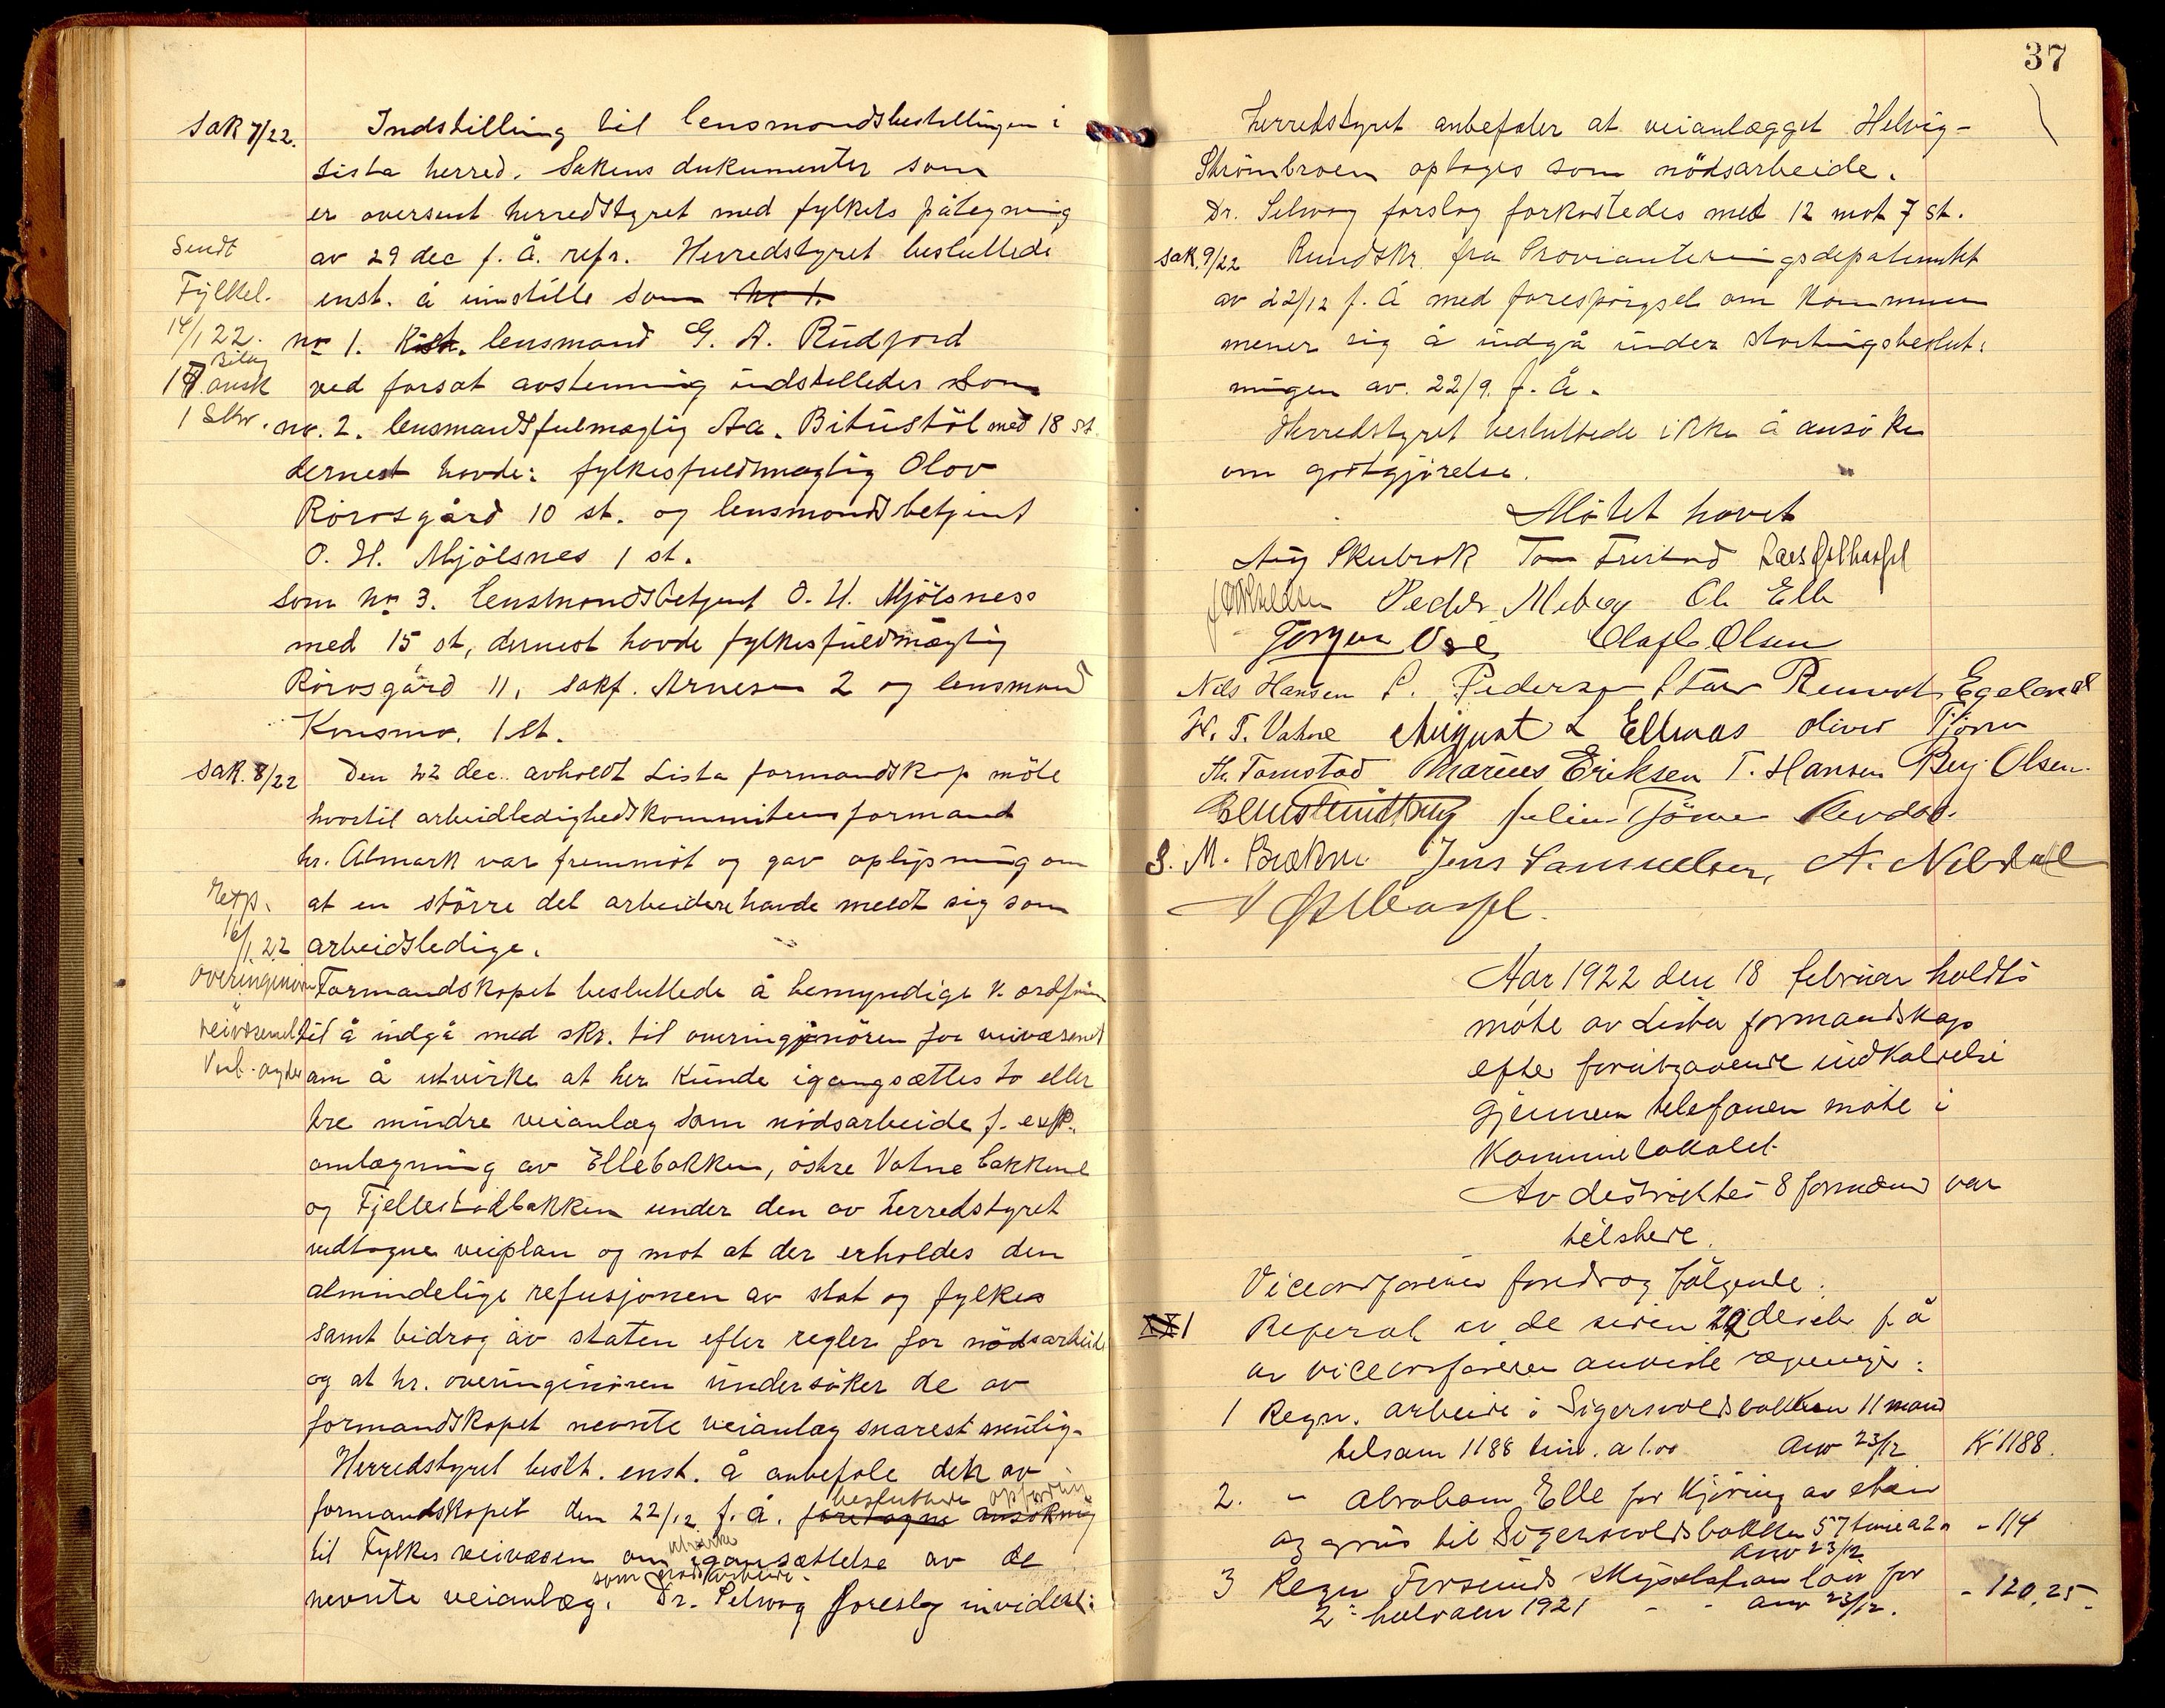 Sak 7/22. Indstilling til lensmandsbestillingen i
Lista herred. Sakens dukumenter som
er oversent herredstyret med fylkets påtegning
Sendt av 29 dec f. å. refr. Herredstyret besluttede
Fylket. enst. å innstille som no 1.
14/1 22. no 1. Kst. lensmand G. A. Rudjord
Bilag
17 ansk ved forsat avstemning indstilledes som
1 Skr. no. 2. lensmandsfulmægtig Aa. Bitustöl med 18 st.
dernest havde: fylkesfuldmægtig Olav
Rörosgård 10 st. og lensmandsbetjent
O. H. Mjölsnes 1 st.
Som no 3. lensmandsbetjent O. H. Mjölsness
med 15 st, dernest havde fylkesfuldmægtig
Rörosgård 11, sakf. Arnesen 2 og lensmand
Konsmo. 1 st.
Sak. 8/22 Den 22 dec. avholdt Lista formandskap möte
hvortil arbeidledighedskommiteens formand
hr. Almark var fremmöt og gav oplysning om
Exp. at en större del arbeidere havde meldt sig som
16/1 22 arbeidsledige.
overingeniör Formandskapet besluttede å bemyndige v. ordför
veivæsenet til å indgå med skr. til overingeniören for veivæsenet
Vest-agder om å utvirke at her kunde igangsættes to eller
tre mindre veianlæg som nödsarbeide f. exp.
omlægning av Ellebakken, östre Vatne bakkene
og Fjellestadbakken under den av herredstyret
vedtagne veiplan og mot at der erholdes den
almindelige refusjonen av stat og fylkes
samt bidrag av staten efter regler for nödsarbeide
og at hr. overingeniören undersöker de av
formandskapet nevnte veianlæg snarest mulig.
Herredstyret beslt. enst. å anbefale den av
besluttede opfordring
formandskapet den 22/12 f. å. foretagne ansökning
utvirke
til Fylkes veivæsen om igangsættelse av de
som nödsarbeide.
nevnte veianlæg. Dr. Selvag foreslog invidere:
37
Herredstyret anbefaler at veianlægget Helvig-
Strömbroen optages som nödsarbeide.
Dr. Selvag forslag forkastedes med 12 mot 7 st.
Sak. 9/22 Rundskr. fra Provianteringsdepatemntet
av 22/12 f. å med forespörgsel om Kommunen
mener sig å indgå under stortingsbeslut-
ningen av. 22/9. f. å.
Herredstyret besluttede ikke å ansöke
om godtgjörelse.
Mötet hævet
Aug Skeibrok Tom Frestad Lars
Peder Meberg Ole Elle
Torgen Ore Olaf L Olsen
Nils Hansen P. Pedersen Reinert Egeland
H. T. Vatne August L Ellenes Oliver Tjörn
Th. Tomstad Marius Eriksen T. Hansen Benj. Olsen.
Julius Tjörve
S. M. Brekne Jens Samuelsen, A. Nesdal
Aar 1922 den 18 februar holdts
möte av Lista formandskap
efter forutgaaende indkaldelse
gjennem telefonen möte i
Kommunelokalet.
Av destriktes 8 formænd var
tilstede.
Viceordföreren foredrog fölgende:
1 Referat av de siden 29 desebr f å
av viceordföreren anviste regninger:
1 Regn. arbeide i Sigersvoldsbakken 11 mand
tilsam 1188 tim. a 1.00 Anv 23/12 Kr 1188.
2. " Abraham Elle for Kjöring av sten
og grus til Sigersvoldsbakken 57 timer a 2.0 - 114
Anv 23/12
3 Regn Farsunds Mynstefon lav for
2. halvaar 1921 - - anv 23/12. - 120,25.